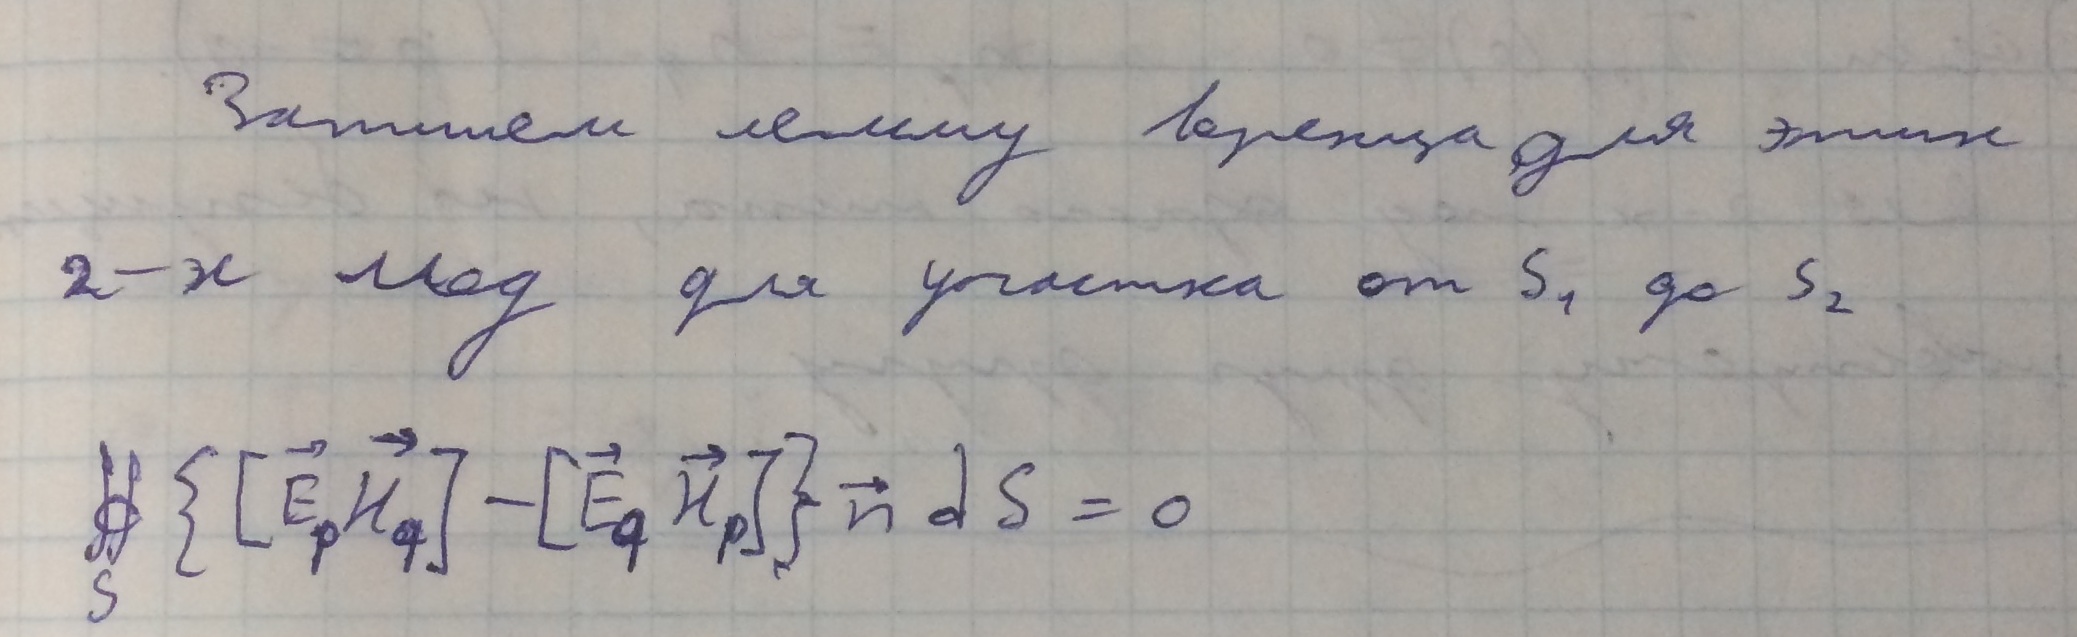 Запишем лемму Лоренца для этих
2-х мод для участка от S₁ до S₂
∯_S {[E⃗_p H⃗_q] - [E⃗_q H⃗_p]} n⃗ dS = 0